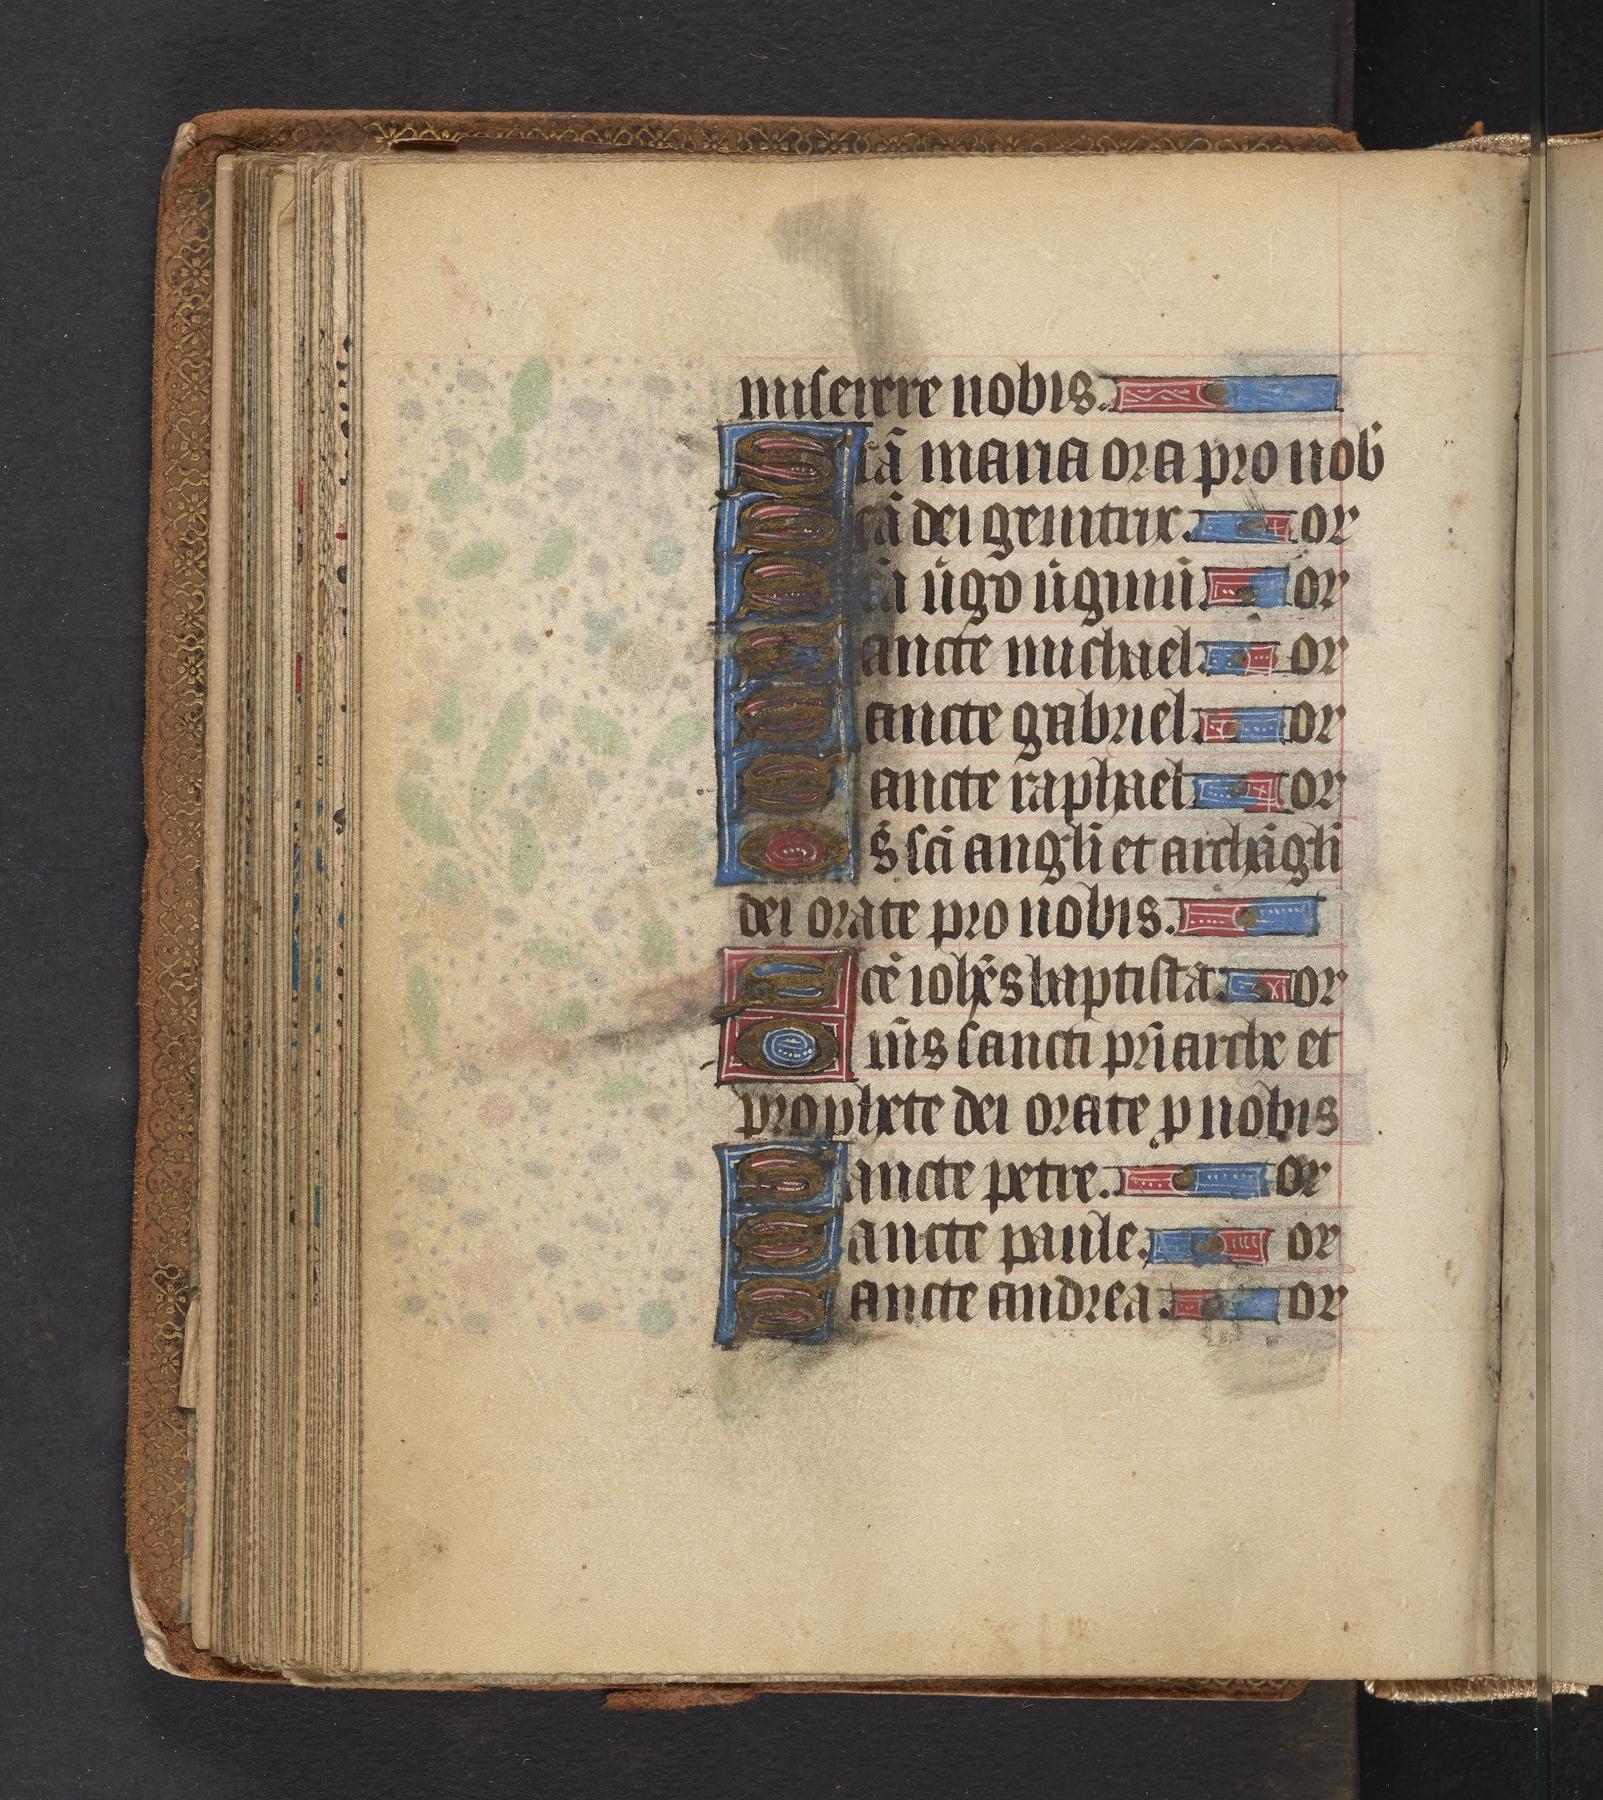 miserere nobis.
Scā maria ora pro nob
Scā dei genitrix. or
Scā ūgo ūginū. or
Sancte michael. or
Sancte gabriel. or
Sancte raphael. or
Om̄s sc̄i angl̄i et archāgl̄i
dei orate pro nobis.
Sc̄e ioh̄es baptista. or
Om̄is sancti pr̄iarche et
prophete dei orate p nobis
Sancte petre. or
Sancte paule. or
Sancte andrea. or